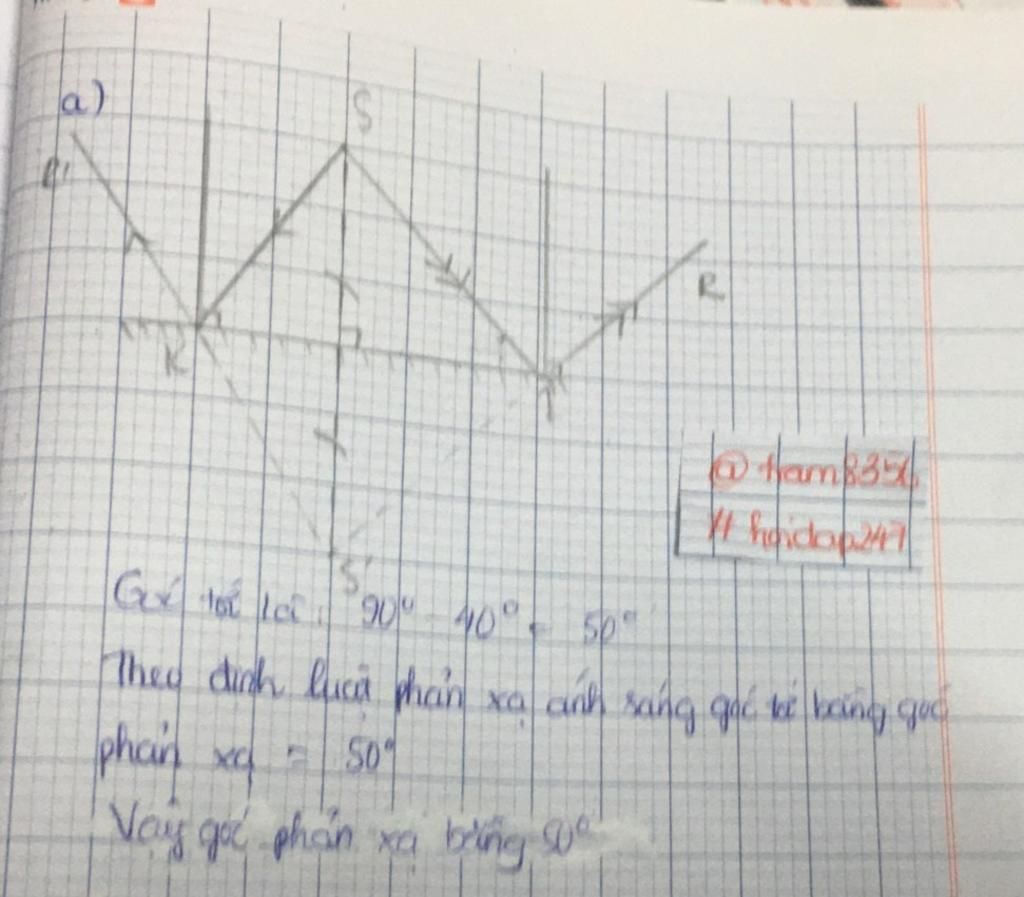 a)
S
R'
R
K
I
@tram8356
# hoidap247
S'
Góc tới là: 90° - 40° = 50°
Theo định luật phản xạ ánh sáng góc tới bằng góc
phản xạ = 50°
Vậy góc phản xạ bằng 50°